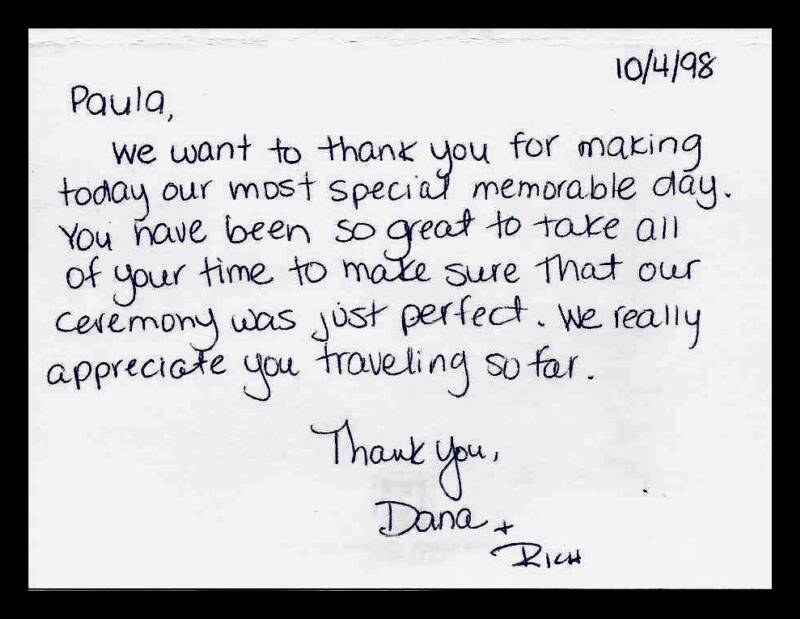 10/4/98
Paula,
We want to thank you for making
today our most special memorable day.
You have been so great to take all
of your time to make sure that our
ceremony was just perfect. We really
appreciate you traveling so far.
Thank you,
Dana +
Rich